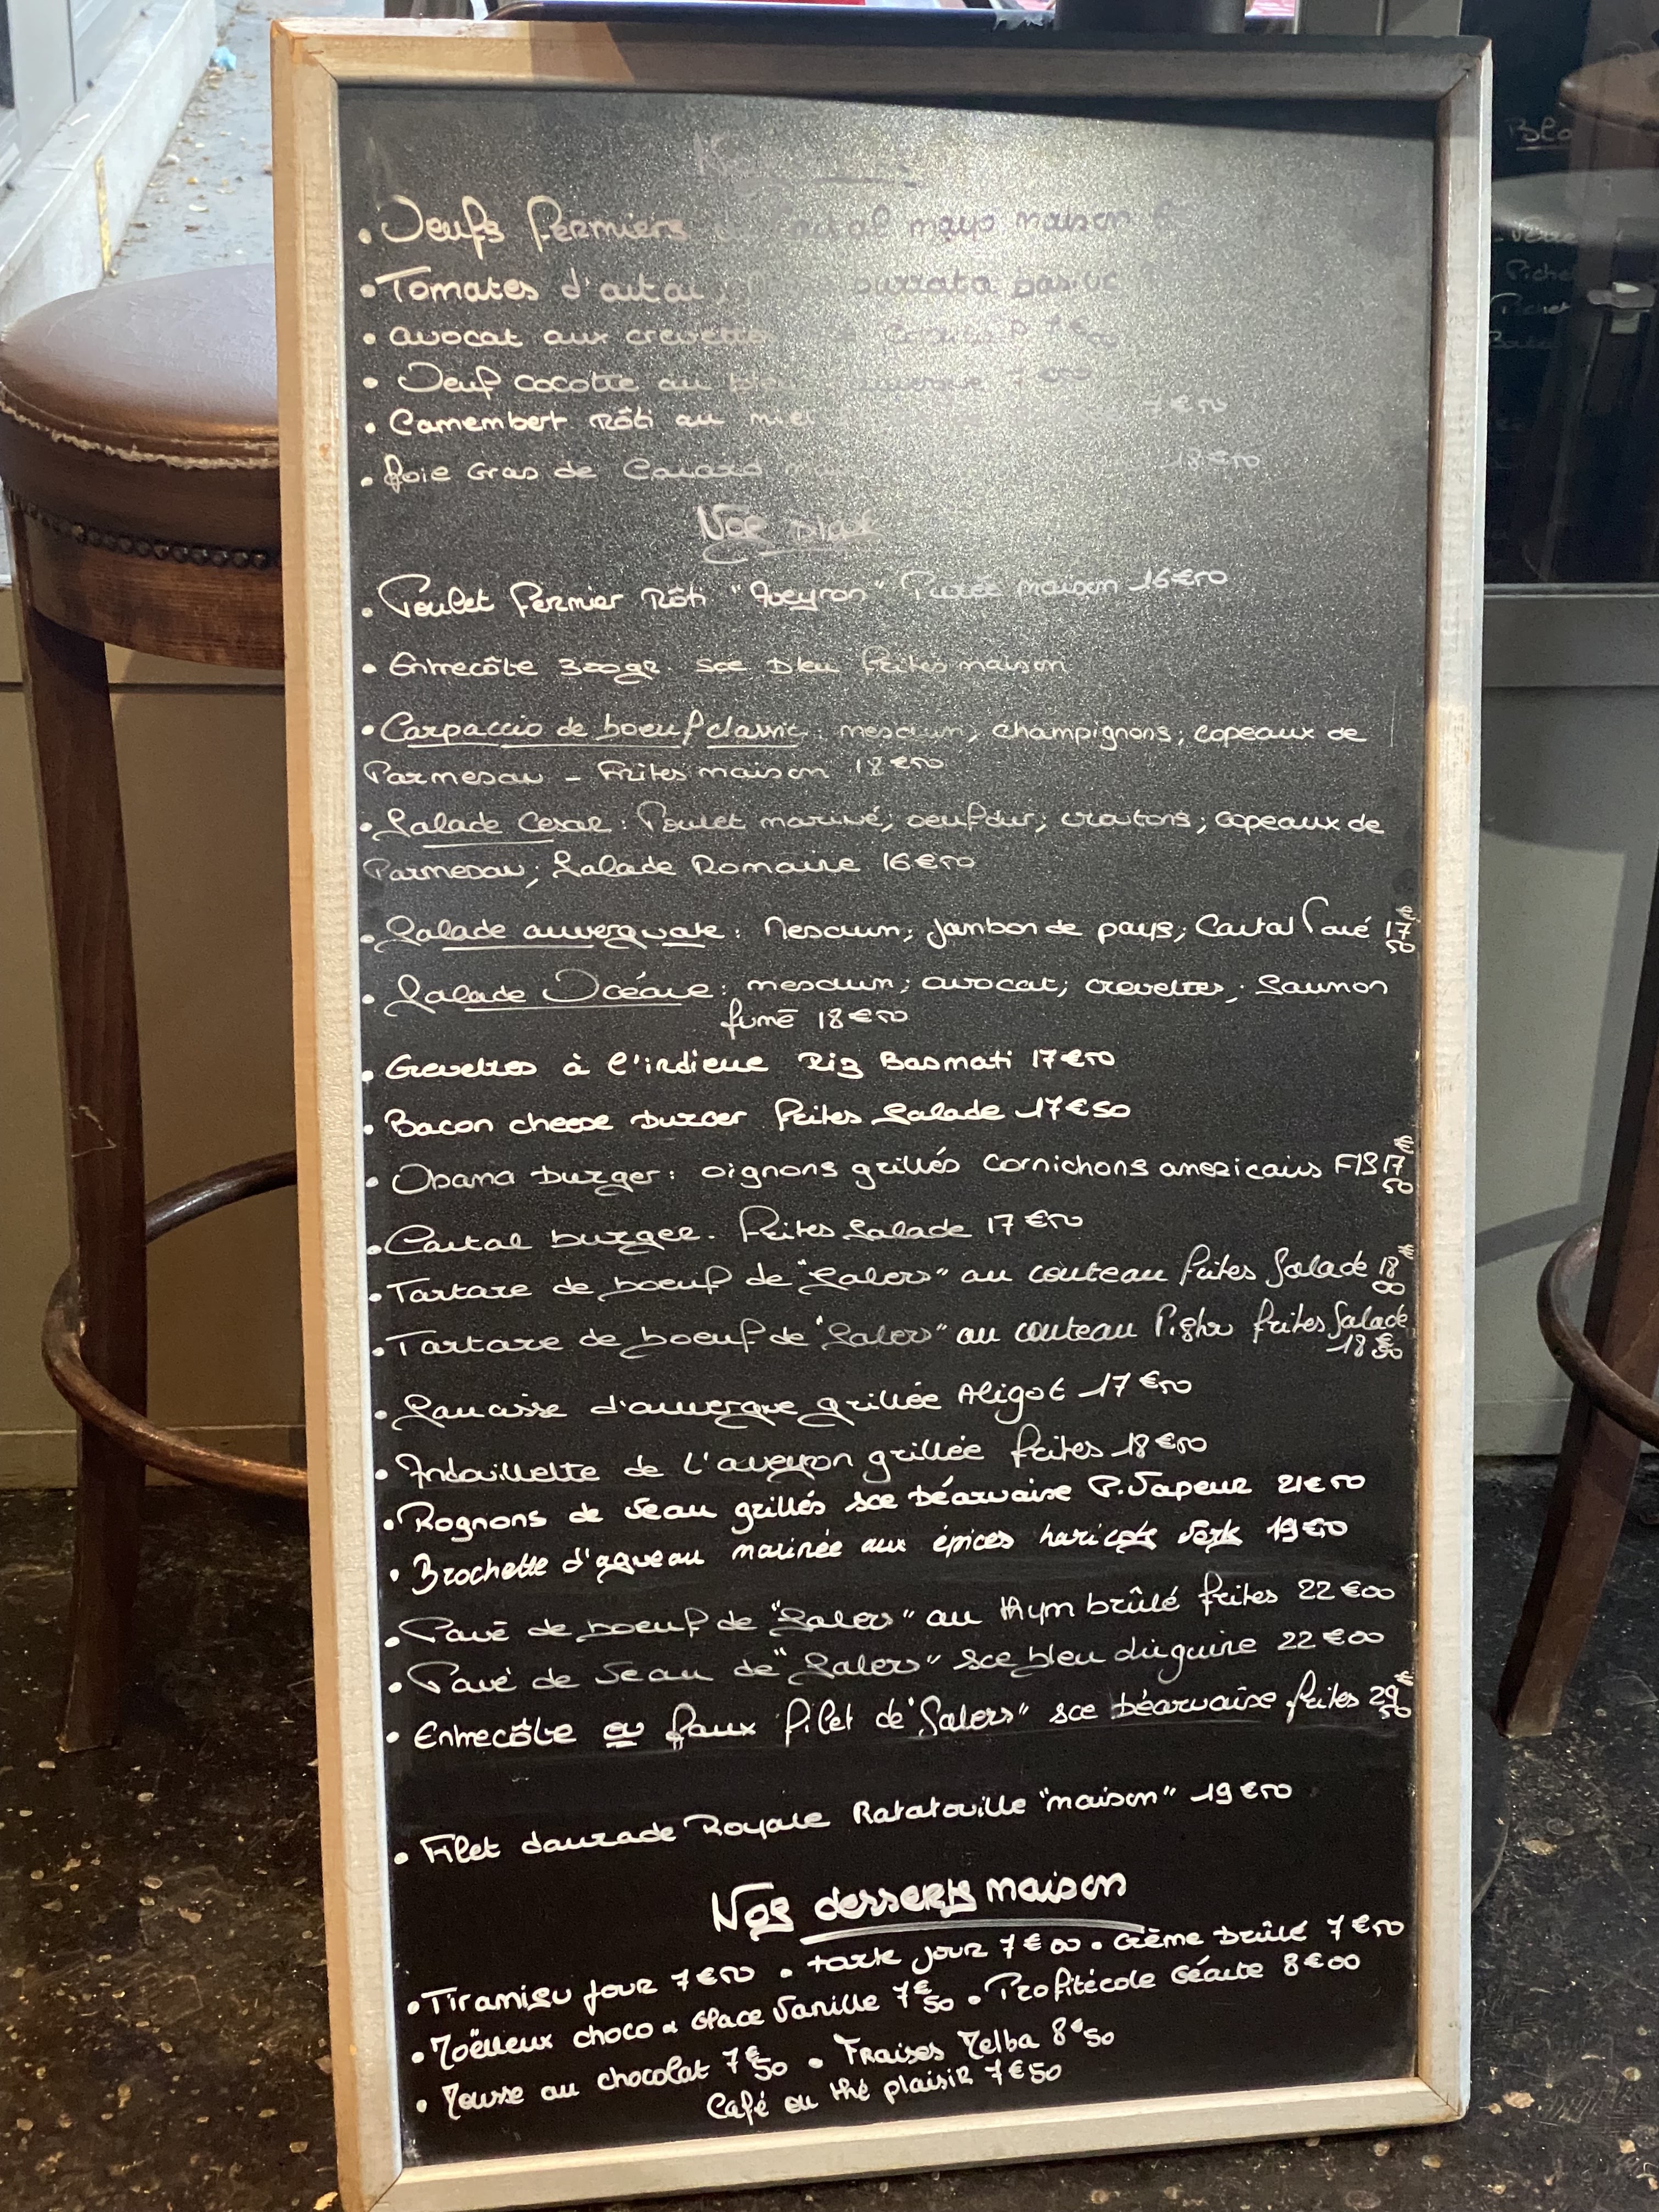 • Oeufs fermiers mayo maison
• Tomates d'antan, burrata basilic
• avocat aux crevettes cocktail 7€50
• Oeuf cocotte au bleu d'auvergne 7€50
• Camembert Rôti au miel 7€50
• foie Gras de Canard 18€50
Nos plats
• Poulet fermier Rôti "Aveyron" Purée maison 16€50
• Entrecôte 300gr. sce bleu frites maison
• Carpaccio de boeuf classic: mesclun, champignons, copeaux de
Parmesan - Frites maison 18€50
• Salade Cesar: Poulet mariné; oeuf dur; croutons; copeaux de
Parmesan; Salade Romaine 16€50
• Salade auvergnate: Mesclun; jambon de pays; Cantal Pavé 17€50
• Salade Océane: mesclun; avocat; crevettes; Saumon
fumé 18€50
• Crevettes à l'indienne Riz Basmati 17€50
• Bacon cheese burger frites Salade 17€50
• Obama burger: oignons grillés cornichons americains F/S 17€50
• Cantal burger. frites Salade 17€50
• Tartare de boeuf de "Salers" au couteau frites Salade 18€00
• Tartare de boeuf de "Salers" au couteau frites Salade
18€50
• Saucisse d'auvergne grillée Aligot 17€50
• Andouillette de L'aveyron grillée frites 18€50
• Rognons de veau grillés sce béarnaise P.Vapeur 21€50
• Brochette d'agneau marinée aux épices haricots verts 19€50
• Pavé de boeuf de "Salers" au thym brûlé frites 22€00
• Pavé de veau de "Salers" sce bleu 22€00
• Entrecôte ou faux filet de "Salers" sce béarnaise frites 29€50
• Filet daurade Royale Ratatouille "maison" 19€50
Nos desserts maison
• Tiramisu jour 7€50 • tarte jour 7€00 • Crème brûlé 7€50
• Moëlleux choco & Glace Vanille 7€50 • Profitérole Géante 8€00
• Mousse au chocolat 7€50 • Fraises Melba 8€50
Café ou thé plaisir 7€50